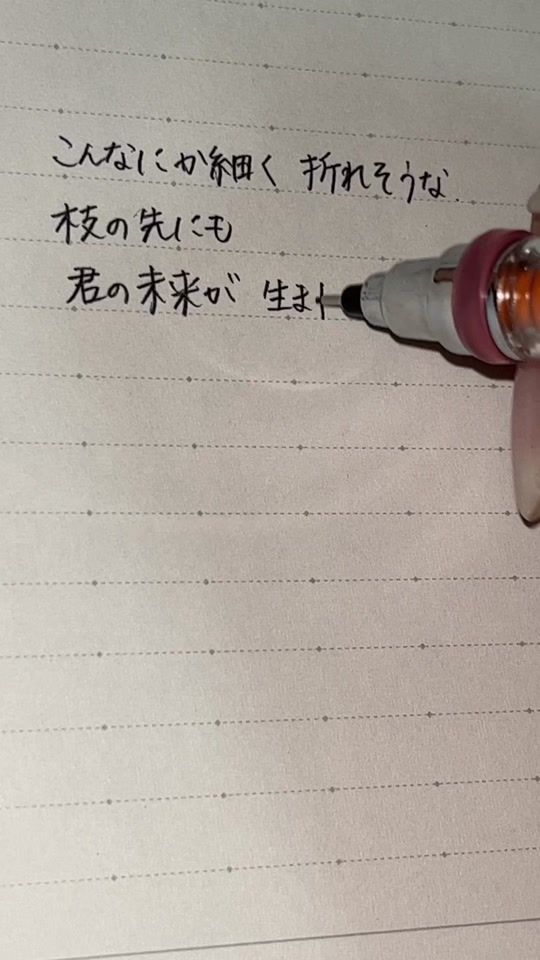 こんなにか細く 折れそうな
枝の先にも
君の未来が 生ま